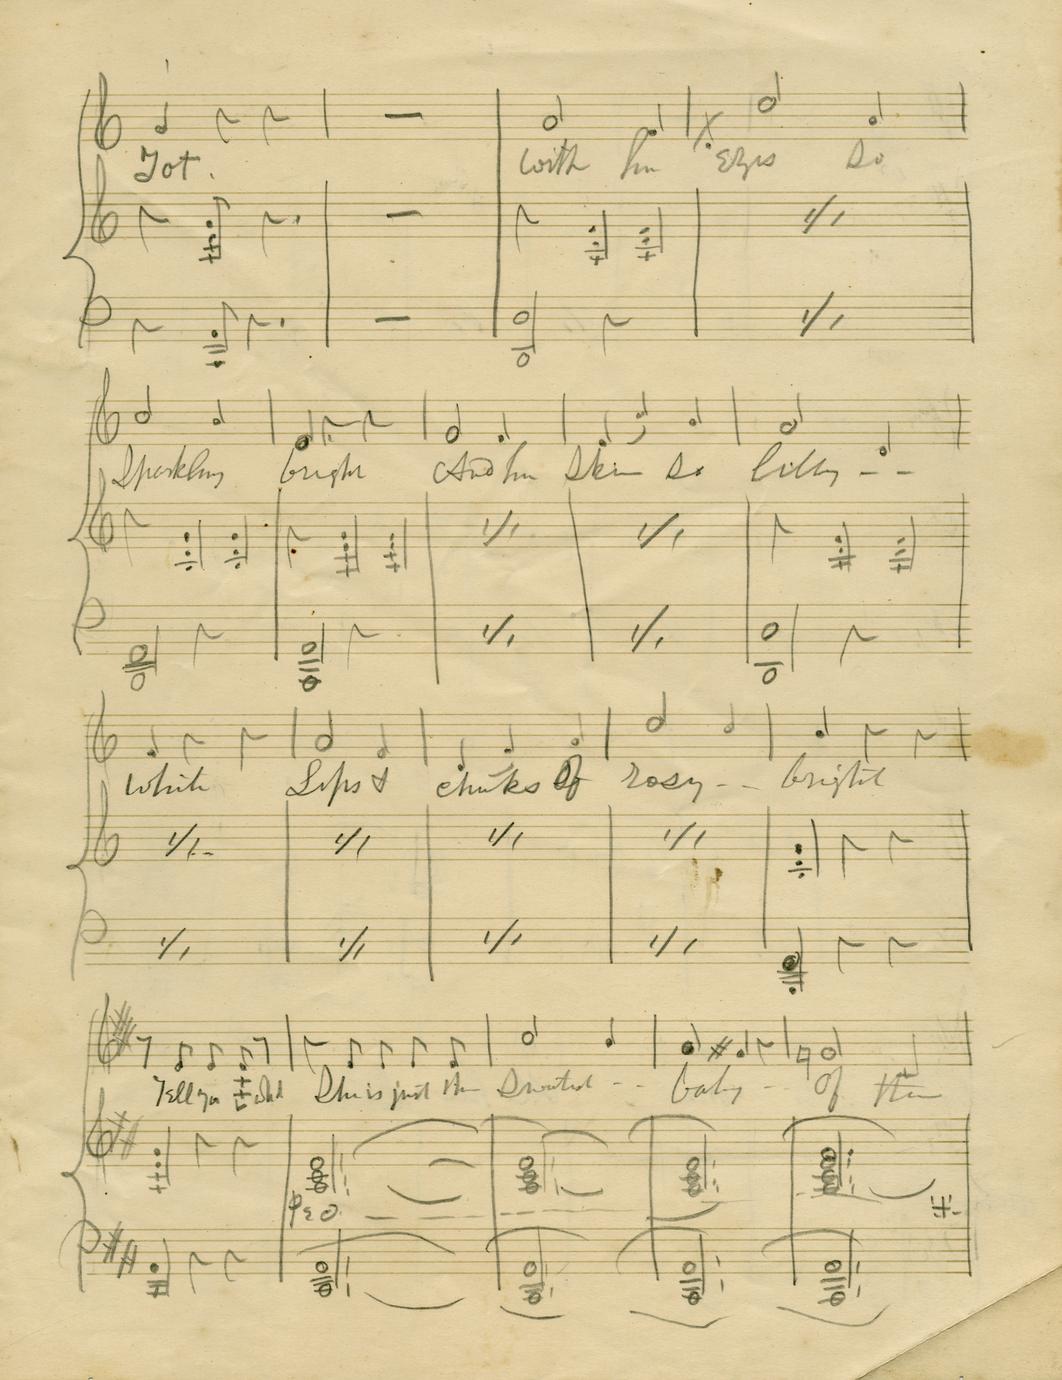 Tot. with her Eyes So
Sparkling bright And her Skin So lilly --
White Lips & cheeks of rosy -- bright
Tell you She is just the Sweetest -- baby -- Of them
Ped